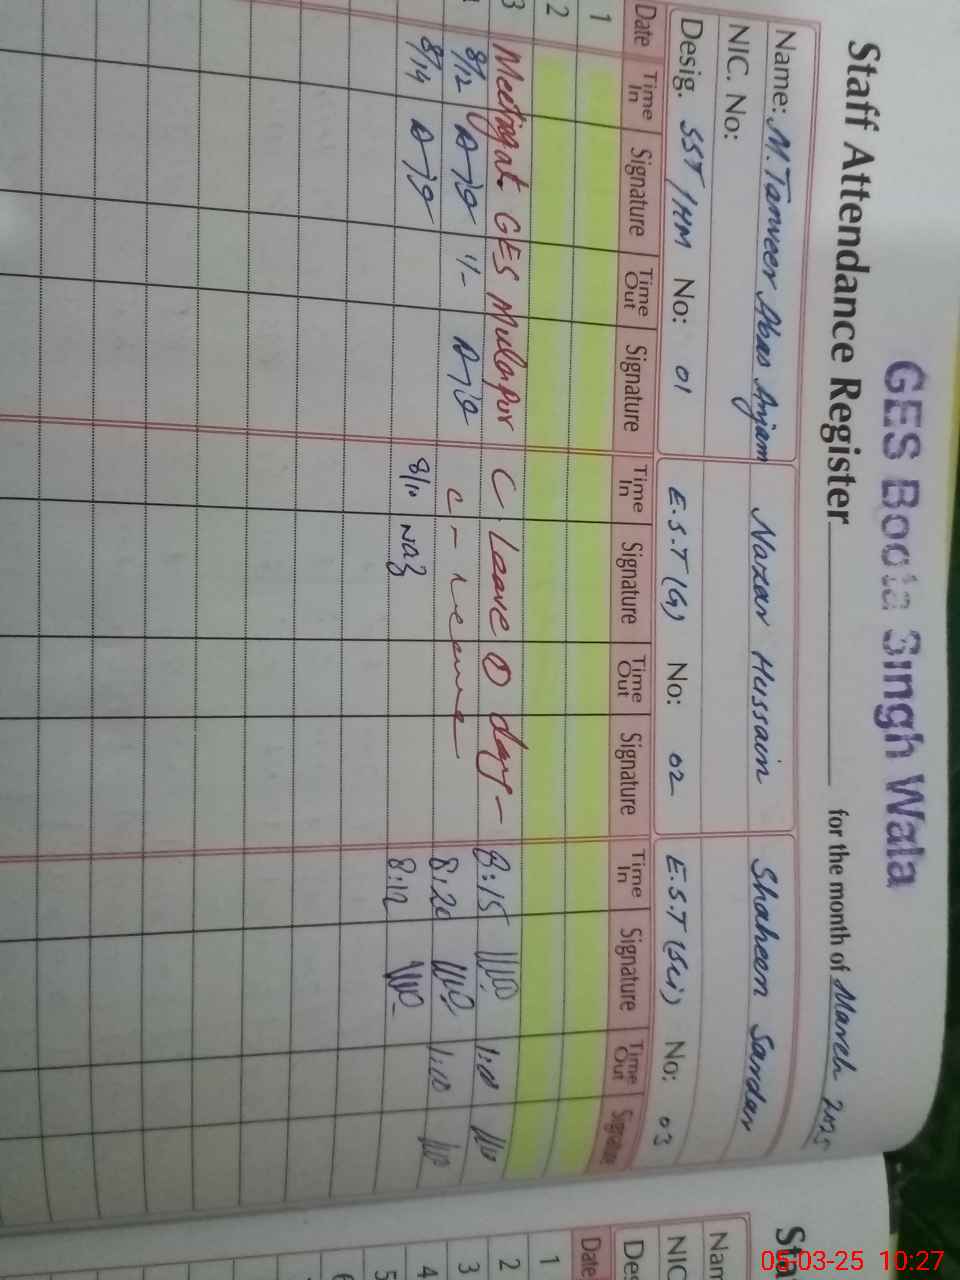 GES Boota Singh Wala
Staff Attendance Register for the month of March 2025
Name: M.Tanveer Abas Anjam Nazar Hussain Shaheen Sardar
NIC. No:
Desig. SST/HM No: 01 E.S.T (G) No: 02 E.S.T (Sci) No: 03
Date Time In Signature Time Out Signature Time In Signature Time Out Signature Time In Signature Time Out Signature
1
2
3 Meeting at GES Mulapur C. Leave 1 day 8:15 1:00
8/12 1/- c - Leave 8:20 1:00
8/14 8/10 Naz 8:12
Sta
Nam
NIC
Des
Date
1
2
3
4
5
6
05-03-25 10:27